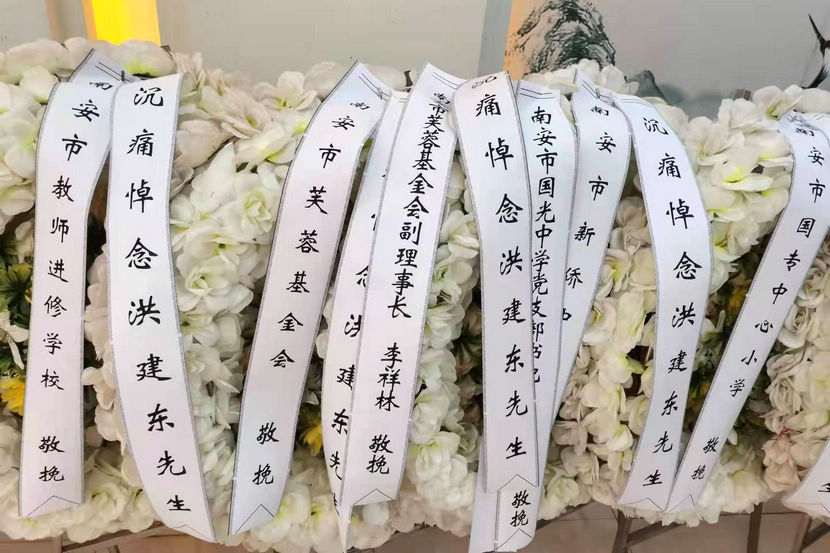 南安市教师进修学校 敬挽
沉痛悼念洪建东先生
南安市芙蓉基金会 敬挽
念洪建东先
南安市芙蓉基金会副理事长 李祥林 敬挽
沉痛悼念洪建东先生
南安市国光中学党支部书记
敬挽
南安市新侨中
沉痛悼念洪建东先生
南安市国专中心小学 敬挽